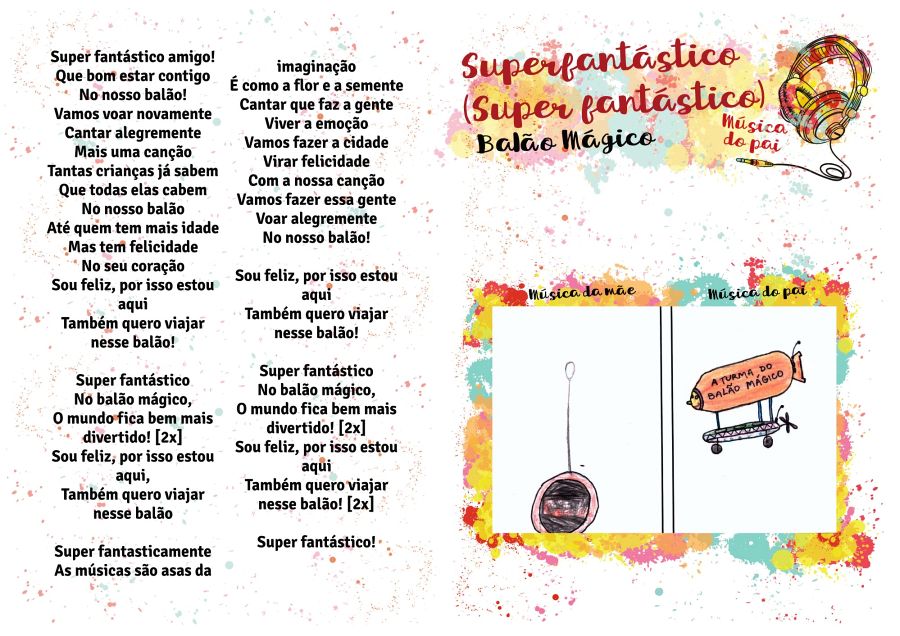 Super fantástico amigo!
Que bom estar contigo
No nosso balão!
Vamos voar novamente
Cantar alegremente
Mais uma canção
Tantas crianças já sabem
Que todas elas cabem
No nosso balão
Até quem tem mais idade
Mas tem felicidade
No seu coração
Sou feliz, por isso estou
aqui
Também quero viajar
nesse balão!
Super fantástico
No balão mágico,
O mundo fica bem mais
divertido! [2x]
Sou feliz, por isso estou
aqui,
Também quero viajar
nesse balão
Super fantasticamente
As músicas são asas da
imaginação
É como a flor e a semente
Cantar que faz a gente
Viver a emoção
Vamos fazer a cidade
Virar felicidade
Com a nossa canção
Vamos fazer essa gente
Voar alegremente
No nosso balão!
Sou feliz, por isso estou
aqui
Também quero viajar
nesse balão!
Super fantástico
No balão mágico,
O mundo fica bem mais
divertido! [2x]
Sou feliz, por isso estou
aqui
Também quero viajar
nesse balão! [2x]
Super fantástico!
Superfantástico
(Super fantástico)
Balão Mágico
Música
do pai
Música da mãe
Música do pai
A TURMA DO
BALÃO MÁGICO